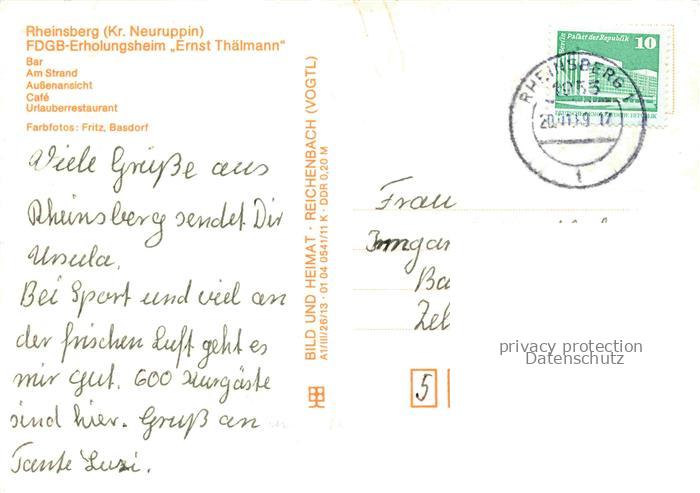 Rheinsberg (Kr. Neuruppin)
FDGB-Erholungsheim „Ernst Thälmann“
Bar
Am Strand
Außenansicht
Café
Urlauberrestaurant
Farbfotos: Fritz, Basdorf
Viele Grüße aus
Rheinsberg sendet Dir
Ursula.
Bei Sport und viel an
der frischen Luft geht es
mir gut. 600 Kurgäste
sind hier. Gruß an
Tante Luzi.
BILD UND HEIMAT · REICHENBACH (VOGTL)
A1/III/26/13 · 01 04 0541/11 K · DDR 0,20 M
Berlin Palast der Republik
10
RHEINSBERG 1
1955
Frau
Irmgar
Ba
Zel
5
privacy protection
Datenschutz